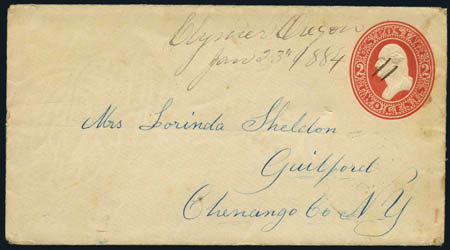 Clymer Oregon
Jan 23rd/1884
U.S. POSTAGE
2 2
TWO CENTS
Mrs Lorinda Sheldon
Guilford
Chenango Co N.Y